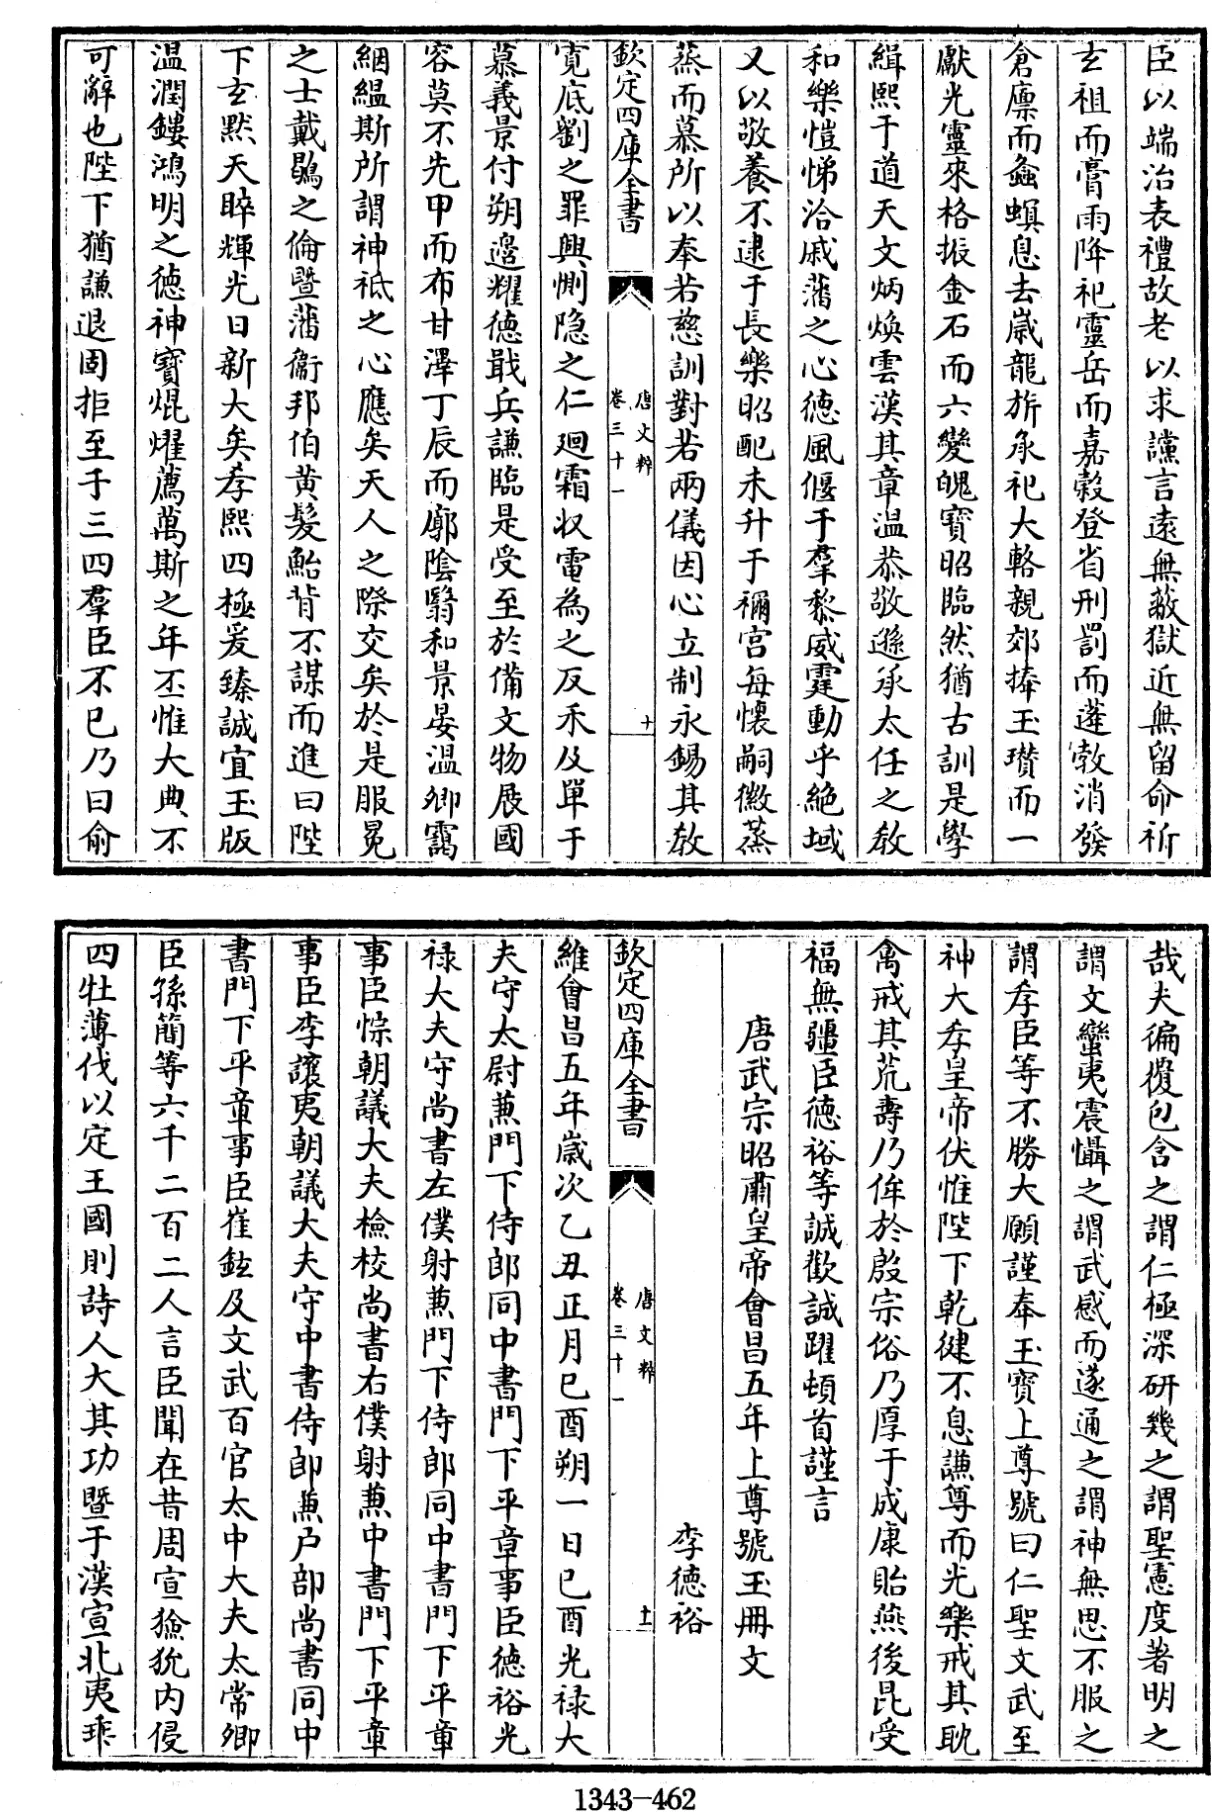 臣以端治表禮故老以求讜言遠無蔽獄近無留命祈
玄祖而膏雨降祀靈岳而嘉穀登省刑罰而蓬勃消發
倉廪而螽螟息去嵗龍旂承祀大輅親郊捧玉瓚而一
獻光靈來格振金石而六變魄寶昭臨然猶古訓是學
緝熙于道天文炳煥雲漢其章温恭敬遜承太任之教
和樂愷悌洽戚藩之心德風偃于羣黎威霆動乎絶域
又以敬養不逮于長樂昭配未升于禰宫每懷嗣徽蒸
蒸而慕所以奉若慈訓對若兩儀因心立制永錫其教
欽定四庫全書
唐文粹
卷三十一
十
寛底劉之罪興惻隐之仁廻霜收電為之反禾及單于
慕義景付朔邉耀德戢兵謙臨是受至於備文物展國
容莫不先甲而布甘澤丁辰而廓陰翳和景晏温卿靄
絪緼斯所謂神祗之心應矣天人之際交矣於是服冕
之士戴鶡之倫暨藩衞邦伯黄髮鮐背不謀而進曰陛
下玄黙天睟輝光日新大矣孝熙四極爰臻誠宜玉版
温潤鏤鴻明之德神寳焜燿薦萬斯之年丕惟大典不
可辭也陛下猶謙退固拒至于三四羣臣不已乃曰俞
哉夫徧覆包含之謂仁極深研幾之謂聖憲度著明之
謂文蠻夷震懾之謂武感而遂通之謂神無思不服之
謂孝臣等不勝大願謹奉玉寳上尊號曰仁聖文武至
神大孝皇帝伏惟陛下乾健不息謙尊而光樂戒其耽
禽戒其荒壽乃侔於殷宗俗乃厚于成康貽燕後昆受
福無疆臣德裕等誠歡誠躍頓首謹言
唐武宗昭肅皇帝會昌五年上尊號玉冊文
李德裕
欽定四庫全書
唐文粹
卷三十一
十一
維會昌五年嵗次乙丑正月已酉朔一日已酉光禄大
夫守太尉兼門下侍郎同中書門下平章事臣德裕光
禄大夫守尚書左僕射兼門下侍郎同中書門下平章
事臣悰朝議大夫檢校尚書右僕射兼中書門下平章
事臣李讓夷朝議大夫守中書侍郎兼户部尚書同中
書門下平章事臣崔鉉及文武百官太中大夫太常卿
臣孫簡等六千二百二人言臣聞在昔周宣獫狁内侵
四牡薄伐以定王國則詩人大其功暨于漢宣北夷乖
1343-462